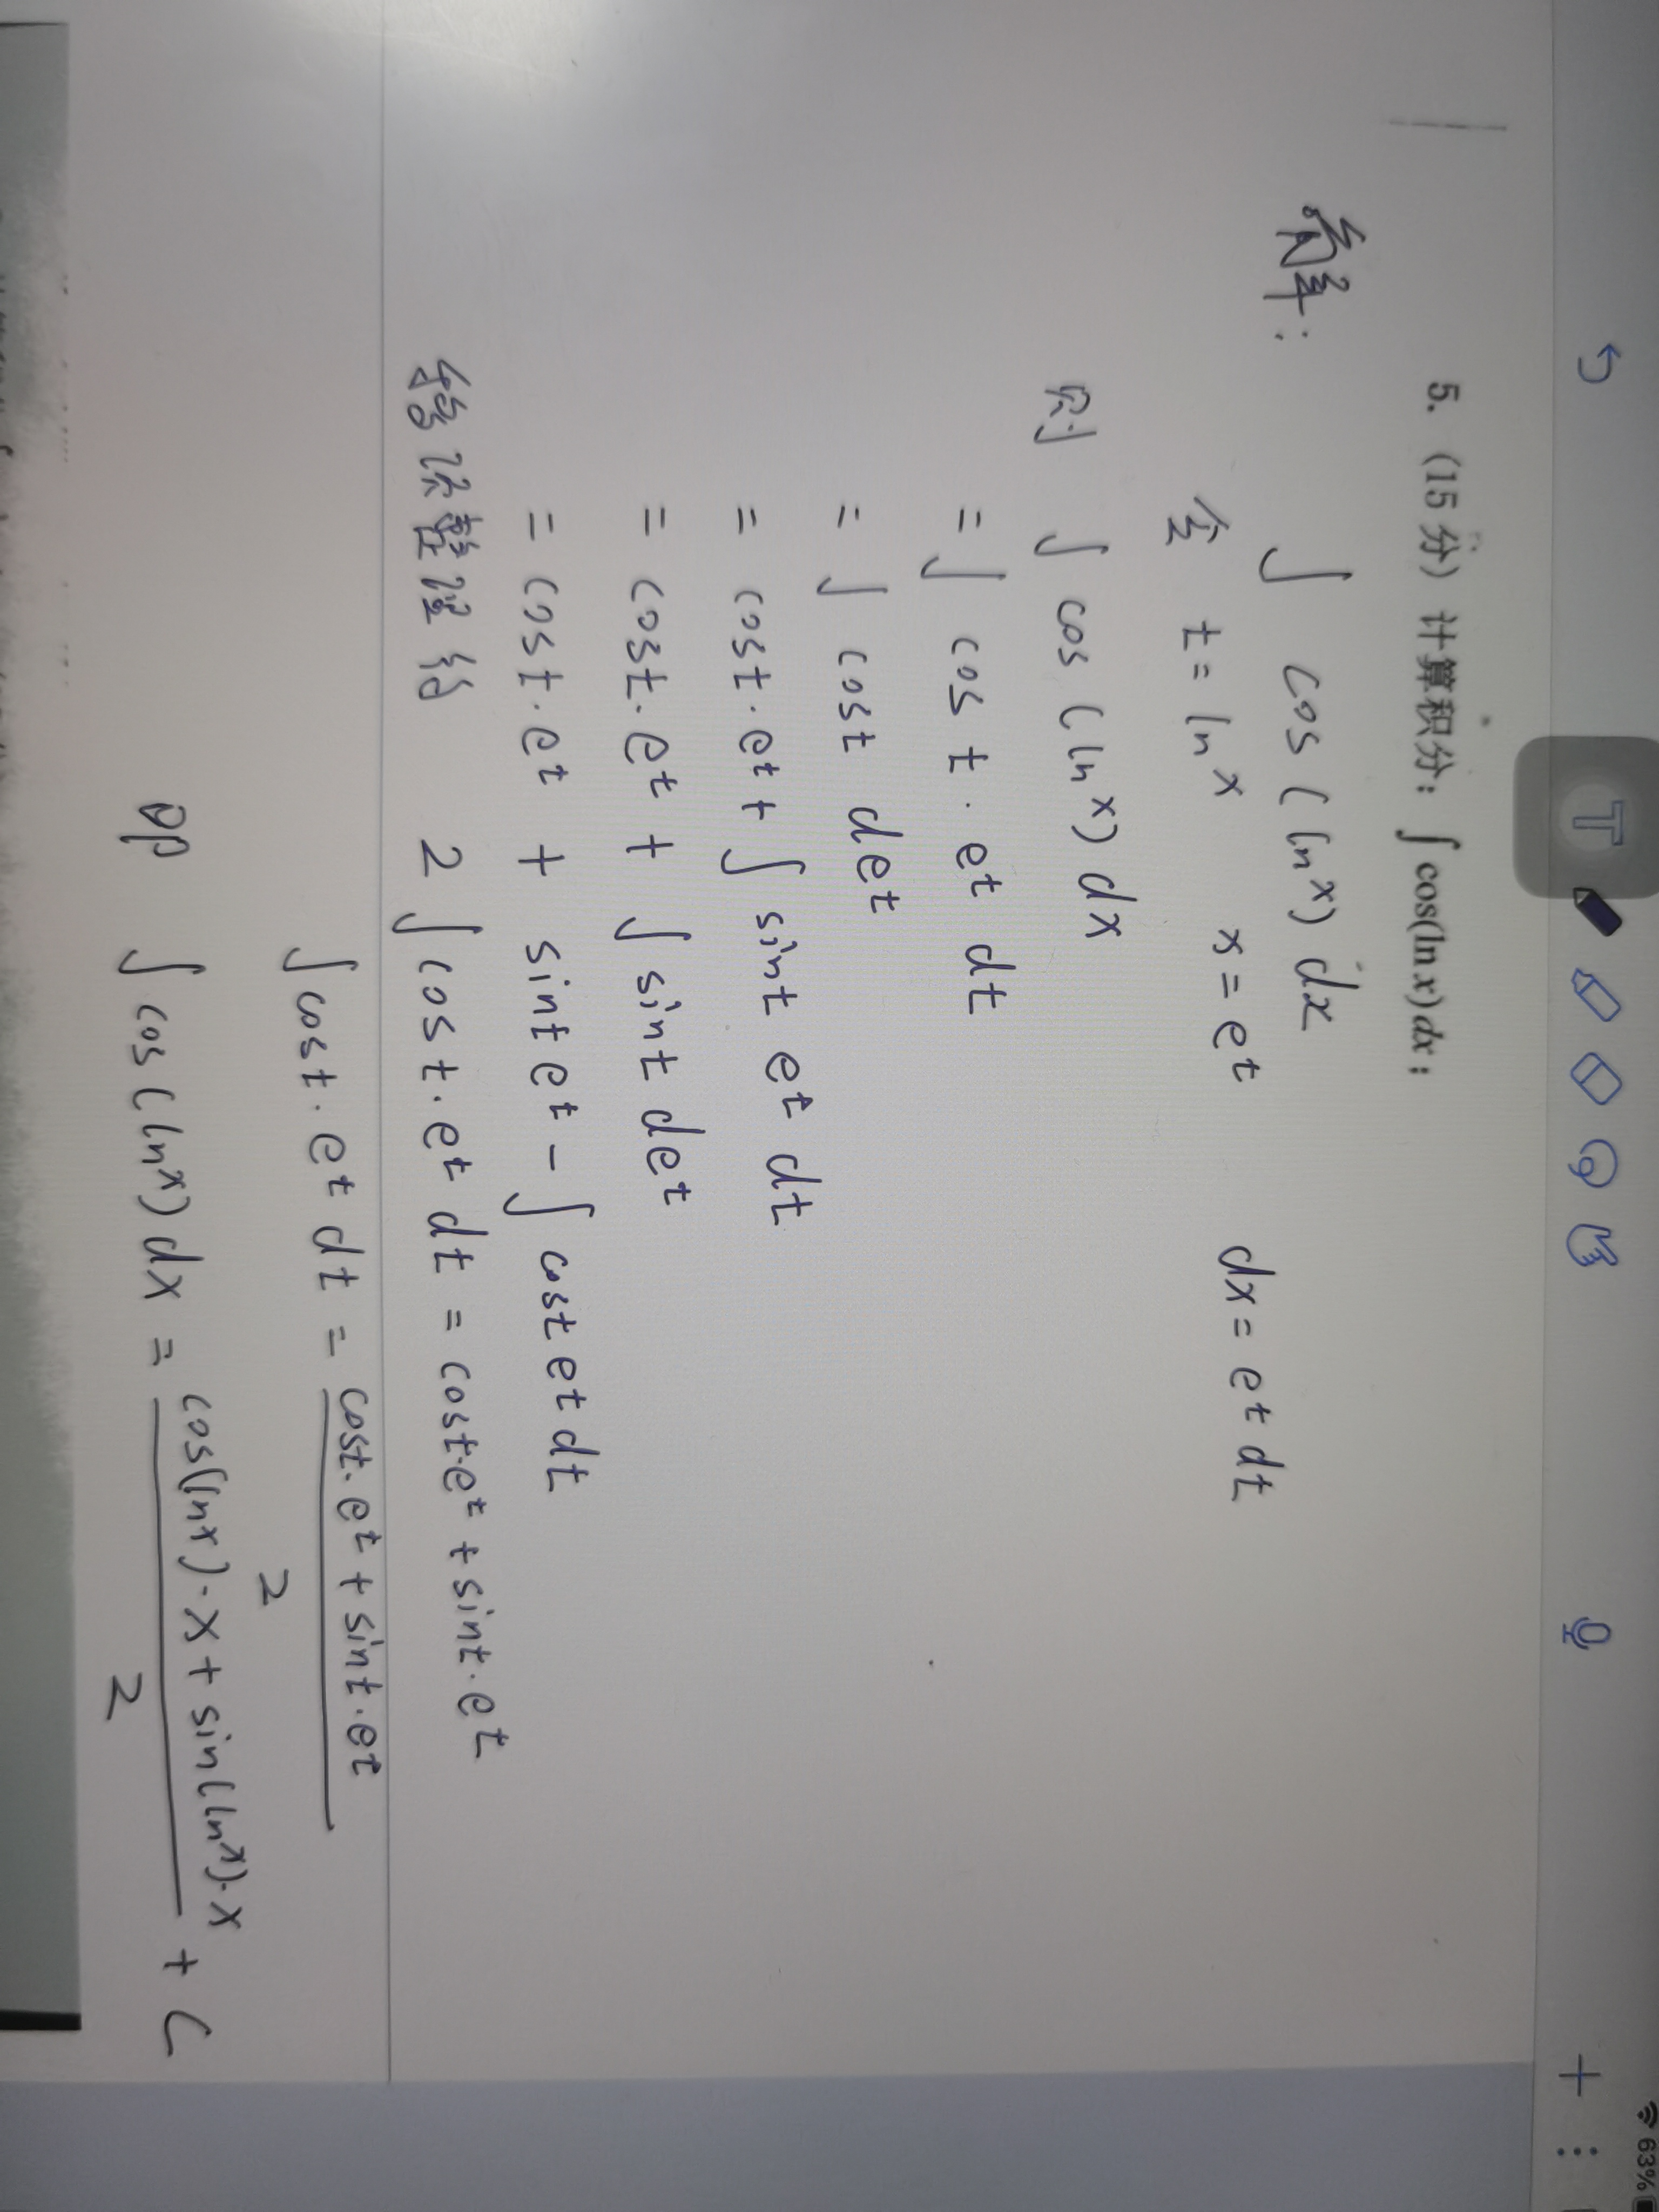 63%
5. (15 分) 计算积分: ∫ cos(ln x) dx ;
解: ∫ cos (ln x) dx
令 t = ln x x = e^t dx = e^t dt
则 ∫ cos (ln x) dx
= ∫ cos t · e^t dt
= ∫ cost de^t
= cost · e^t + ∫ sint e^t dt
= cost · e^t + ∫ sint de^t
= cost · e^t + sint e^t - ∫ cost e^t dt
2 ∫ cost · e^t dt = cost·e^t + sint · e^t
∫ cost · e^t dt = (cost · e^t + sint · e^t) / 2
即 ∫ cos (ln x) dx = (cos(ln x) · x + sin(ln x) · x) / 2 + C